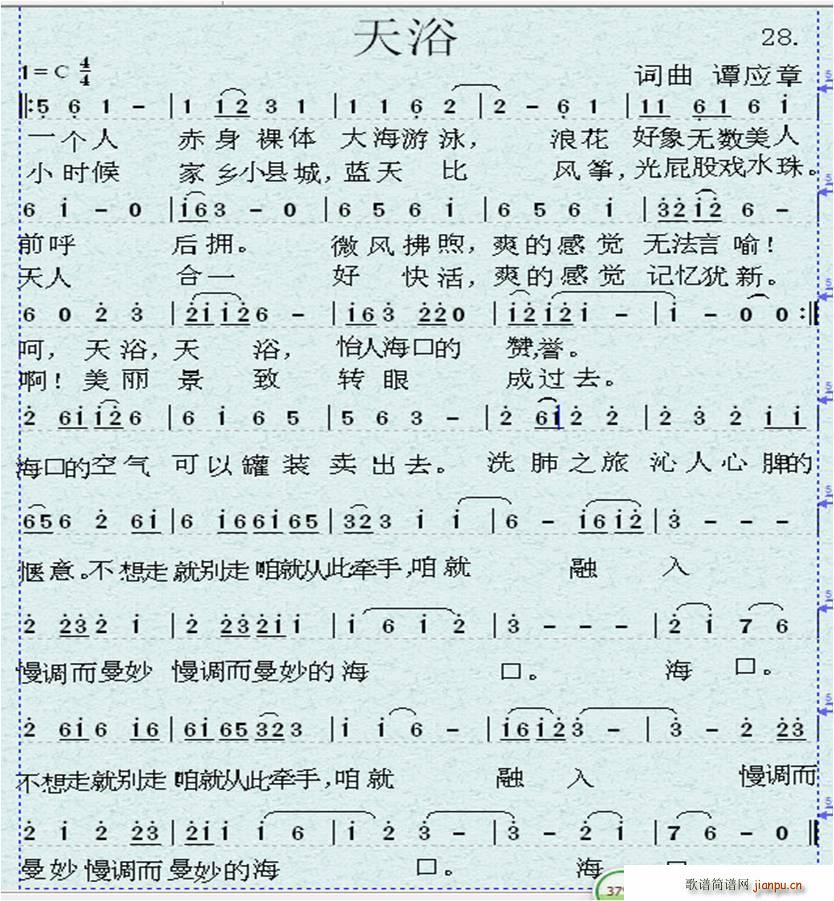 天浴
28.
1=C 4/4
词曲 谭应章
‖:5̣ 6̣ 1 - | 1 1 2 3 1 | 1 1 6̣ 2 | 2 - 6̣ 1 | 1 1 6̣ 1 6 i
一个人 赤身裸体 大海游泳， 浪花 好象无数美人
小时候 家乡小县城，蓝天 比 风筝，光屁股戏水珠。
6 i - 0 | i 6 3 - 0 | 6 5 6 i | 6 5 6 i | 3̇ 2̇ i 2̇ 6 -
前呼 后拥。 微风拂煦，爽的感觉 无法言喻！
天人 合一 好 快活，爽的感觉 记忆犹新。
6 0 2̇ 3̇ | 2̇ i i 2̇ 6 - | i 6 3̇ 2̇ 2̇ 0 | i 2̇ i 2̇ i - | i - 0 0 :‖
呵，天浴，天 浴， 怡人海口的 赞，誉。
啊！美丽 景 致 转眼 成过去。
2̇ 6 i i 2̇ 6 | 6 i 6 5 | 5 6 3 - | 2̇ 6 i 2̇ 2̇ | 2̇ 3̇ 2̇ i i
海口的空气 可以罐装 卖出去。 洗肺之旅 沁人心脾的
6 5 6 2̇ 6 i | 6 i 6 6 i 6 5 | 3 2 3 i i | 6 - i 6 i 2̇ | 3̇ - - -
惬意。不想走就别走 咱就从此牵手，咱就 融 入
2̇ 2̇ 3̇ 2̇ i | 2̇ 2̇ 3̇ 2̇ i i | i 6 i 2̇ | 3̇ - - - | 2̇ i 7 6
慢调而曼妙 慢调而曼妙的海 口。 海 口。
2̇ 6 i 6 i 6 | 6 i 6 5 3 2 3 | i i 6 - | i 6 i 2̇ 3̇ - | 3̇ - 2̇ 2̇ 3̇
不想走就别走 咱就从此牵手，咱就 融 入 慢调而
2̇ i 2̇ 2̇ 3̇ | 2̇ i i i 6 | i 2̇ 3̇ - | 3̇ - 2̇ i | 7 6 - 0 ‖
曼妙 慢调而曼妙的海 口。 海
歌谱简谱网 jianpu.cn